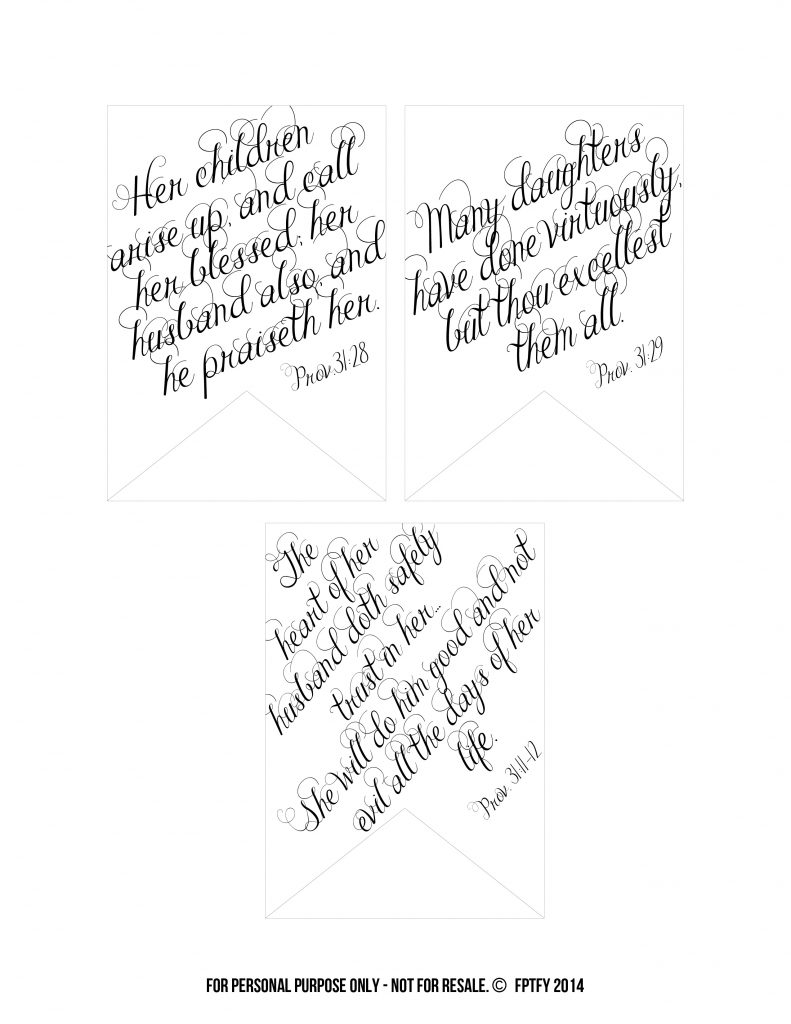 Her children
arise up, and call
her blessed; her
husband also, and
he praiseth her.
Prov.31:28
Many daughters
have done virtuously,
but thou excellest
them all.
Prov. 31:29
The
heart of her
husband doth safely
trust in her...
She will do him good and not
evil all the days of her
life.
Prov. 31:11-12
FOR PERSONAL PURPOSE ONLY - NOT FOR RESALE. © FPTFY 2014